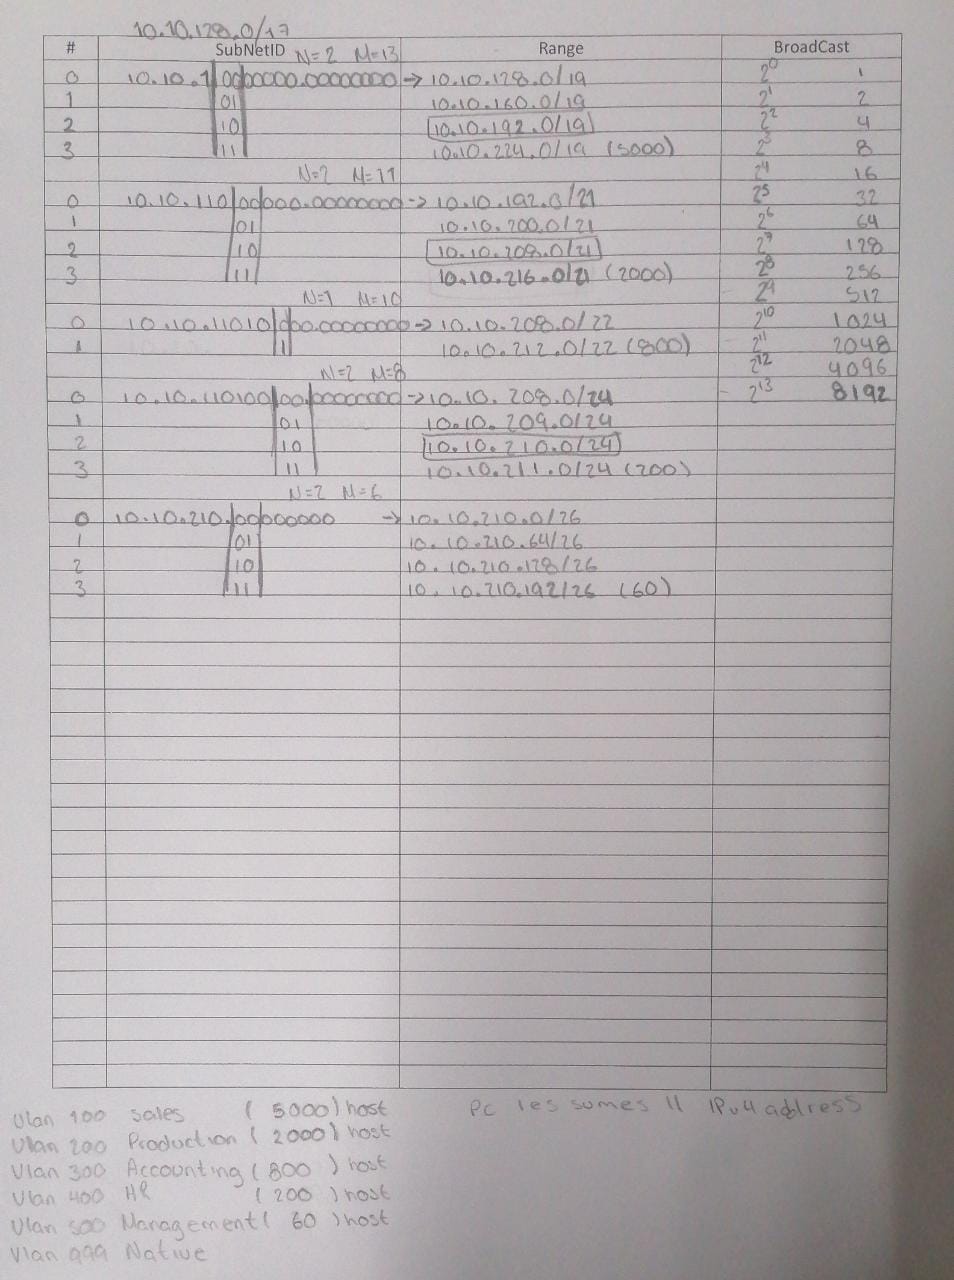 10.10.128.0/17
# SubNetID Range BroadCast
N=2 M=13
0 10.10.1|00|00000.00000000 → 10.10.128.0/19 2^0 1
1 01 10.10.160.0/19 2^1 2
2 10 10.10.192.0/19 2^2 4
3 11 10.10.224.0/19 (5000) 2^3 8
N=2 M=11 2^4 16
0 10.10.110|00|000.00000000 → 10.10.192.0/21 2^5 32
1 01 10.10.200.0/21 2^6 64
2 10 10.10.208.0/21 2^7 128
3 11 10.10.216.0/21 (2000) 2^8 256
N=1 M=10 2^9 512
0 10.10.11010|0|00.00000000 → 10.10.208.0/22 2^10 1024
1 1 10.10.212.0/22 (800) 2^11 2048
N=2 M=8 2^12 4096
0 10.10.110100|00|.00000000 → 10.10.208.0/24 2^13 8192
1 01 10.10.209.0/24
2 10 10.10.210.0/24
3 11 10.10.211.0/24 (200)
N=2 M=6
0 10.10.210.|00|000000 → 10.10.210.0/26
1 01 10.10.210.64/26
2 10 10.10.210.128/26
3 11 10.10.210.192/26 (60)
Vlan 100 sales (5000) host PC les sumes 11 IPv4 address
Vlan 200 Production (2000) host
Vlan 300 Accounting (800) host
Vlan 400 HR (200) host
Vlan 500 Management (60) host
Vlan 999 Native